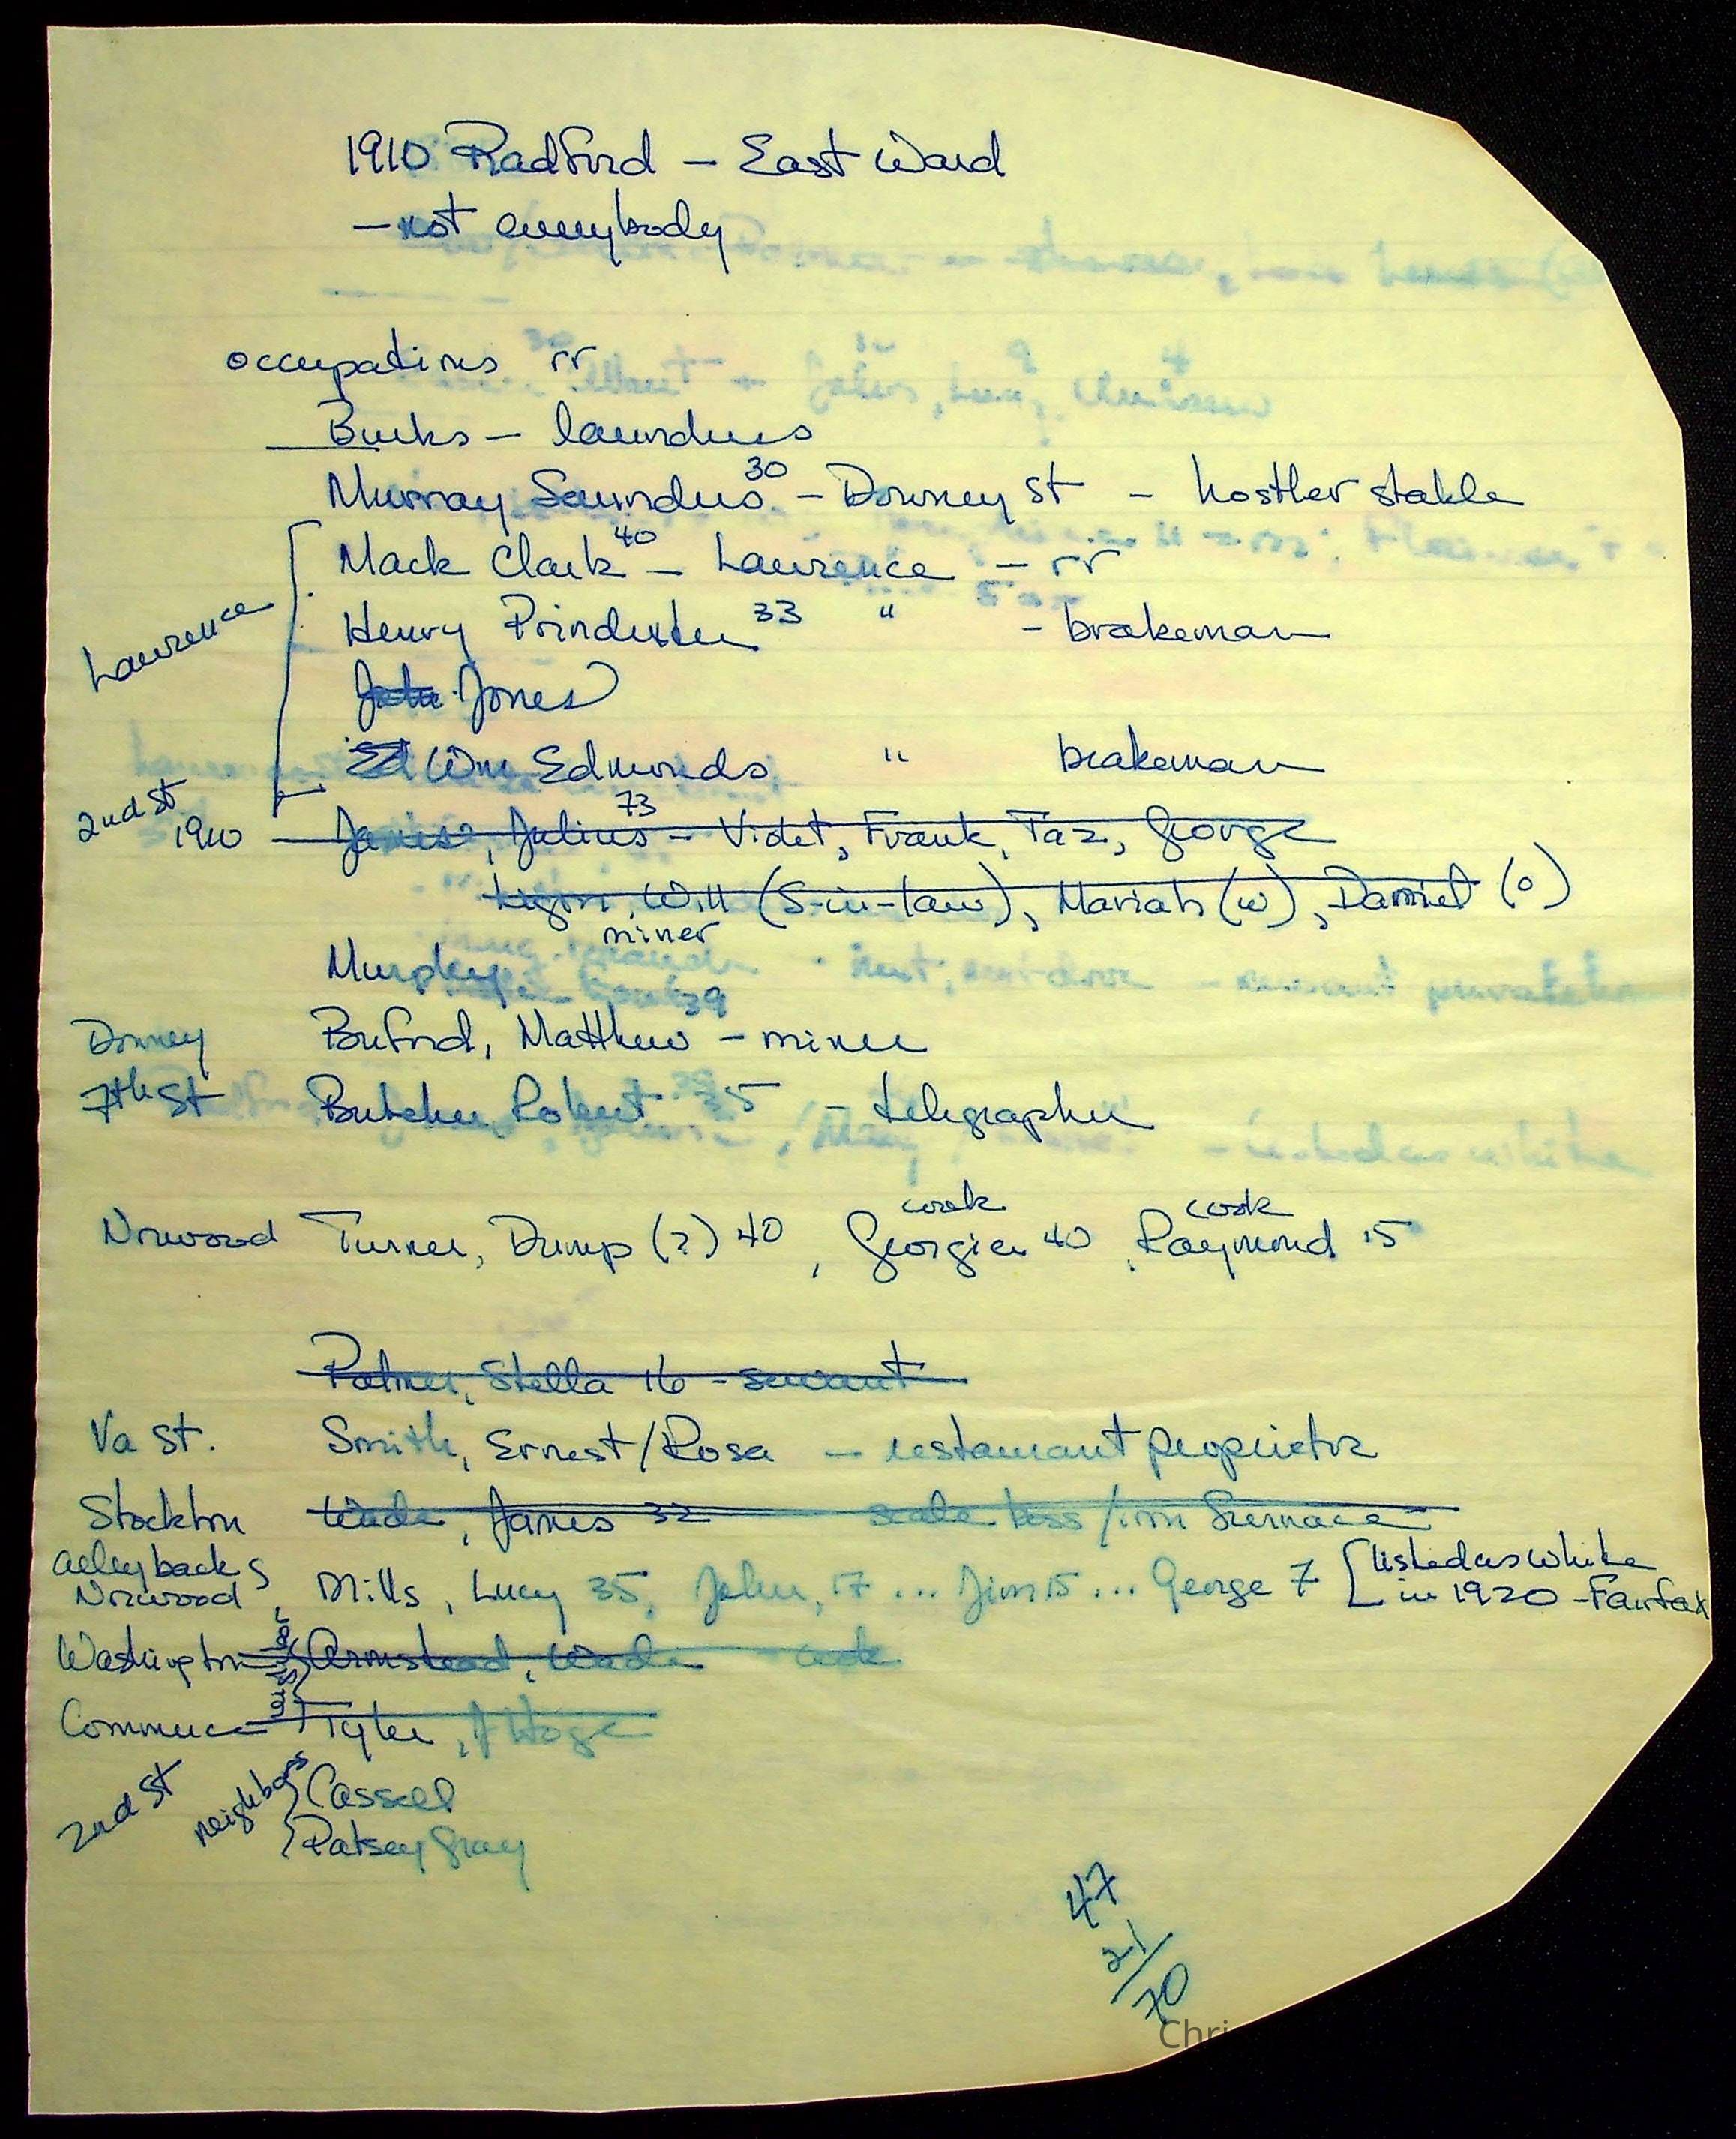 1910 Radford – East Ward
– not everybody
occupations rr
Burks – laundress
Murray Saunders 30 – Downey St – hostler stable
Lawrence
Mack Clark 40 – Lawrence – rr
Henry Poindexter 33 " – brakeman
John Jones
Ed Wm Edmonds " brakeman
2nd St
1910 – James, Julius 73 – Videt, Frank, Taz, George
Will (S-in-law), Mariah (w), Daniel (o)
miner
Murphy
Downey Buford, Matthew 39 – miner
7th St Butcher Robert 35 – telegrapher
Norwood Turner, Dump (?) 40, Georgia 40 cook, Raymond 15 cook
Palmer, Stella 16 – servant
Va St. Smith, Ernest/Rosa – restaurant proprietor
Stockton Wade, James 32 scale boss / iron furnace
Alley back
Norwood, Mills, Lucy 35, John, 17 ... Jim 15 ... George 7 [listed as white
in 1920 – Fairfax
Washington Armstead, Wade – cook
Commerce Tyler, Hoge
2nd St neighbors Cassell
Patsey Gray
47
21/
70
Chri